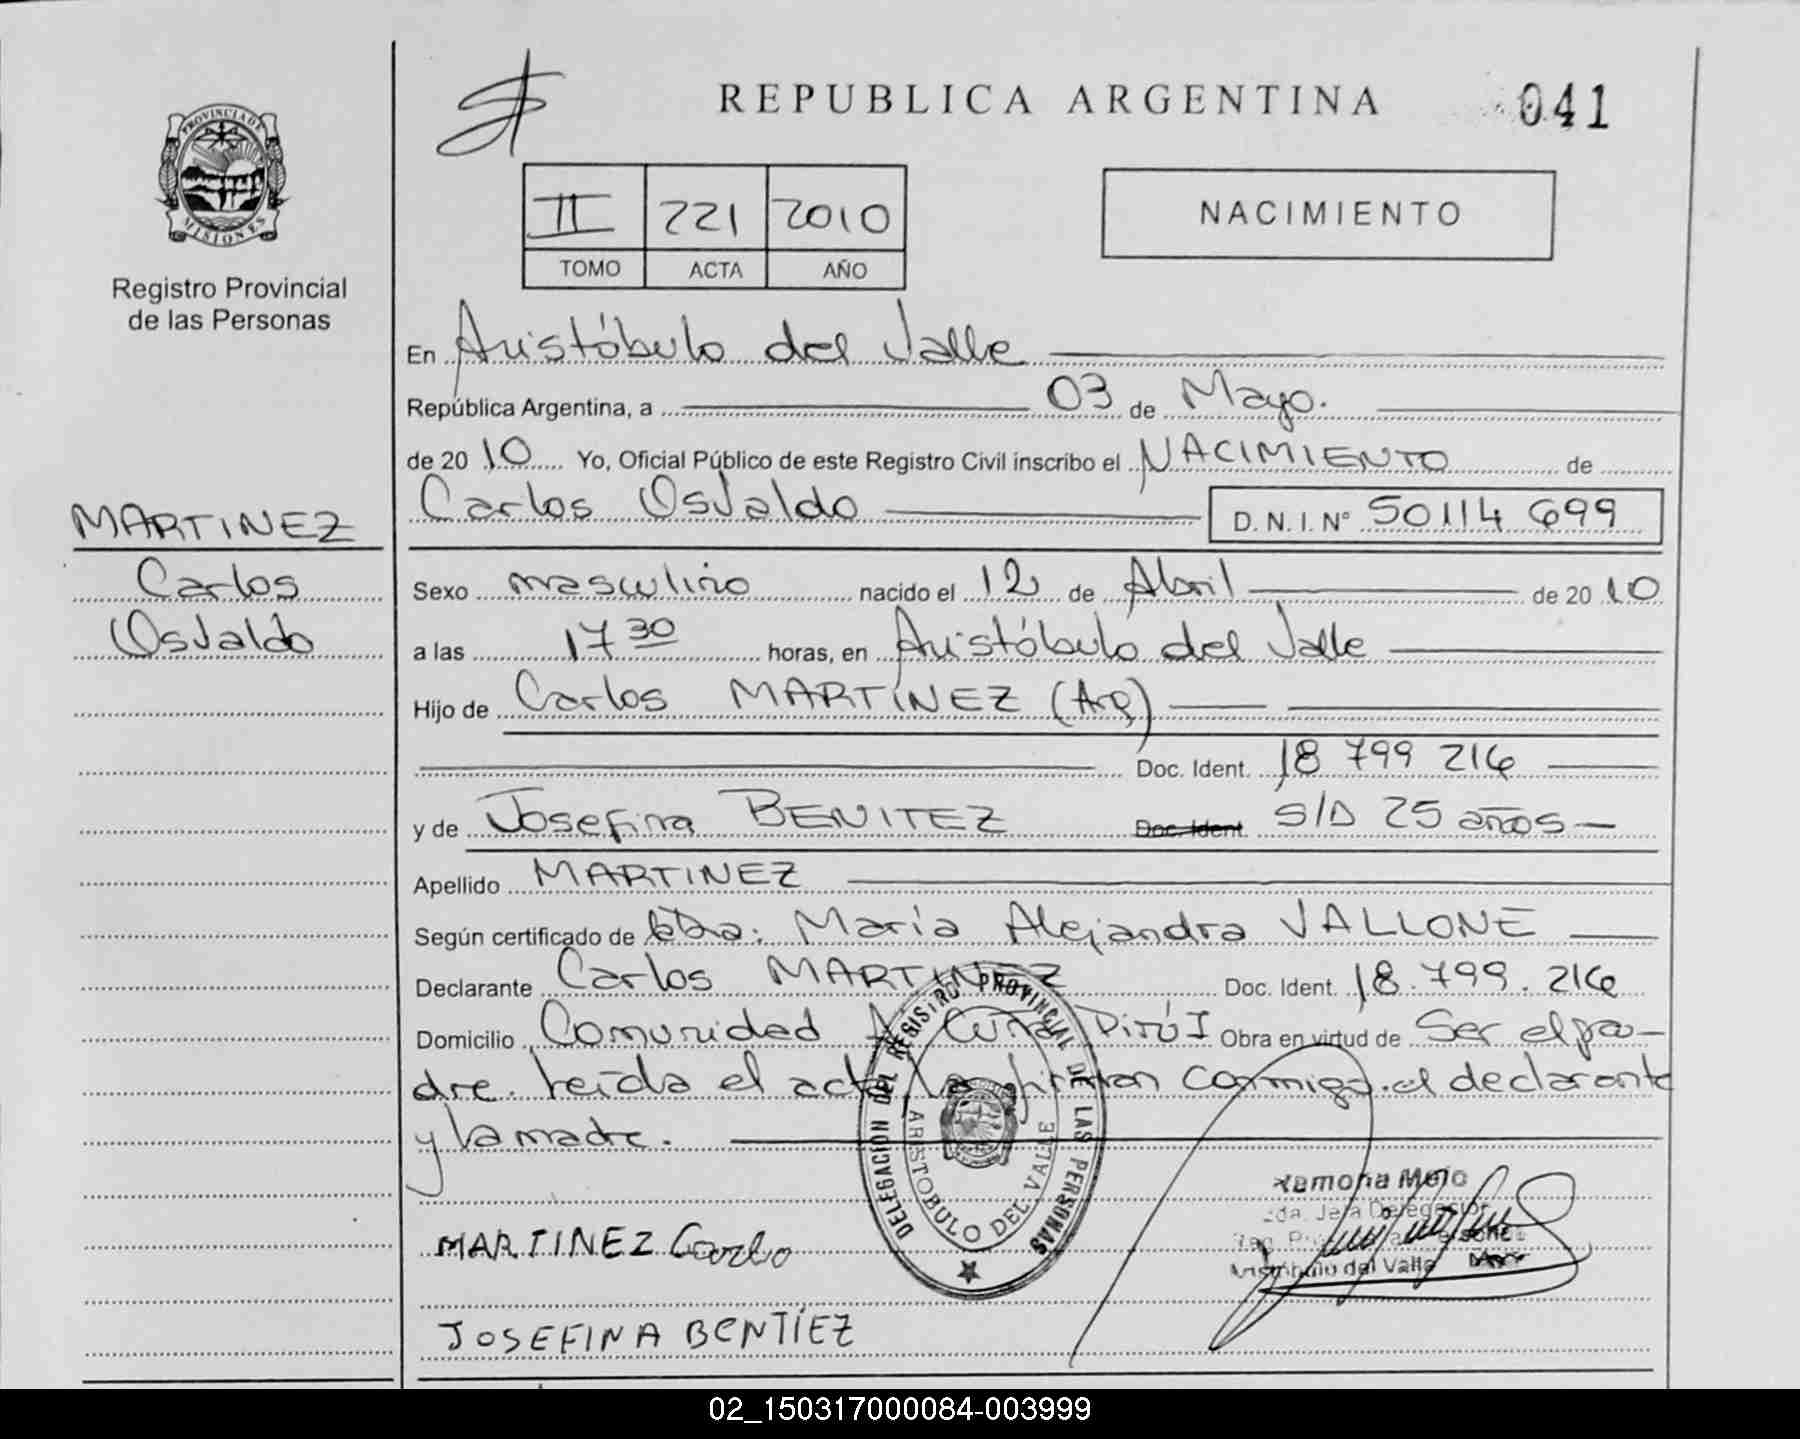 REPUBLICA ARGENTINA
041
PROVINCIA DE
MISIONES
Registro Provincial
de las Personas
II 221 2010
TOMO ACTA AÑO
NACIMIENTO
En Aristóbulo del Valle
República Argentina, a 03 de Mayo.
de 20 10 Yo, Oficial Público de este Registro Civil inscribo el NACIMIENTO de
Carlos Osvaldo D.N.I.Nº 50114 699
MARTINEZ
Carlos
Osvaldo
Sexo masculino nacido el 12 de Abril de 20 10
a las 17 30 horas, en Aristóbulo del Valle
Hijo de Carlos MARTINEZ (Arg)
Doc. Ident. 18 799 216
y de Josefina BENITEZ Doc. Ident S/D 25 años
Apellido MARTINEZ
Según certificado de María Alejandra VALLONE
Declarante Carlos MARTINEZ Doc. Ident. 18.799.216
Domicilio Comunidad Cuña Pirú I Obra en virtud de Ser el pa-
dre. Leída el acta la firman conmigo el declarante
y la madre.
DELEGACION DEL REGISTRO PROVINCIAL DE LAS PERSONAS
ARISTOBULO DEL VALLE
Aristóbulo del Valle
MARTINEZ Carlo
JOSEFINA BENTIEZ
02_150317000084-003999